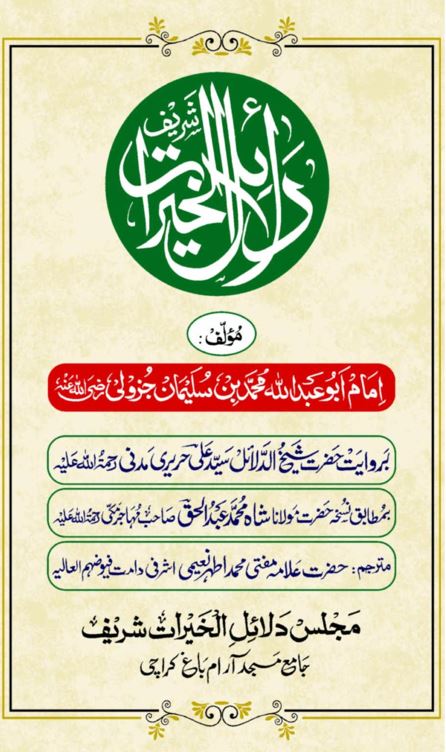 دلائل الخیرات شریف
مؤلف :
اِمَام اَبُو عَبدُاللہ مُحَمَّد بِن سُلَیمَان جُزولی رَضِیَ اللہُ عَنہُ
بَروایَت حَضرت شَیخُ الدَّلائل سَیِّد عَلی حریری مَدنی رَحمَۃُ اللہ عَلَیہ
بمُطابِق نُسخہ حَضرت مَولانا شاہ مُحَمَّد عَبدُ الحق صاحب مُہاجر مکی رَحمَۃُ اللہ عَلَیہ
مترجم: حضرت علامہ مفتی محمد اطہر نعیمی اشرفی دامت فیوضہم العالیہ
مَجلس دَلائلِ الخَیرات شریف
جامع مسجد آرام باغ کراچی